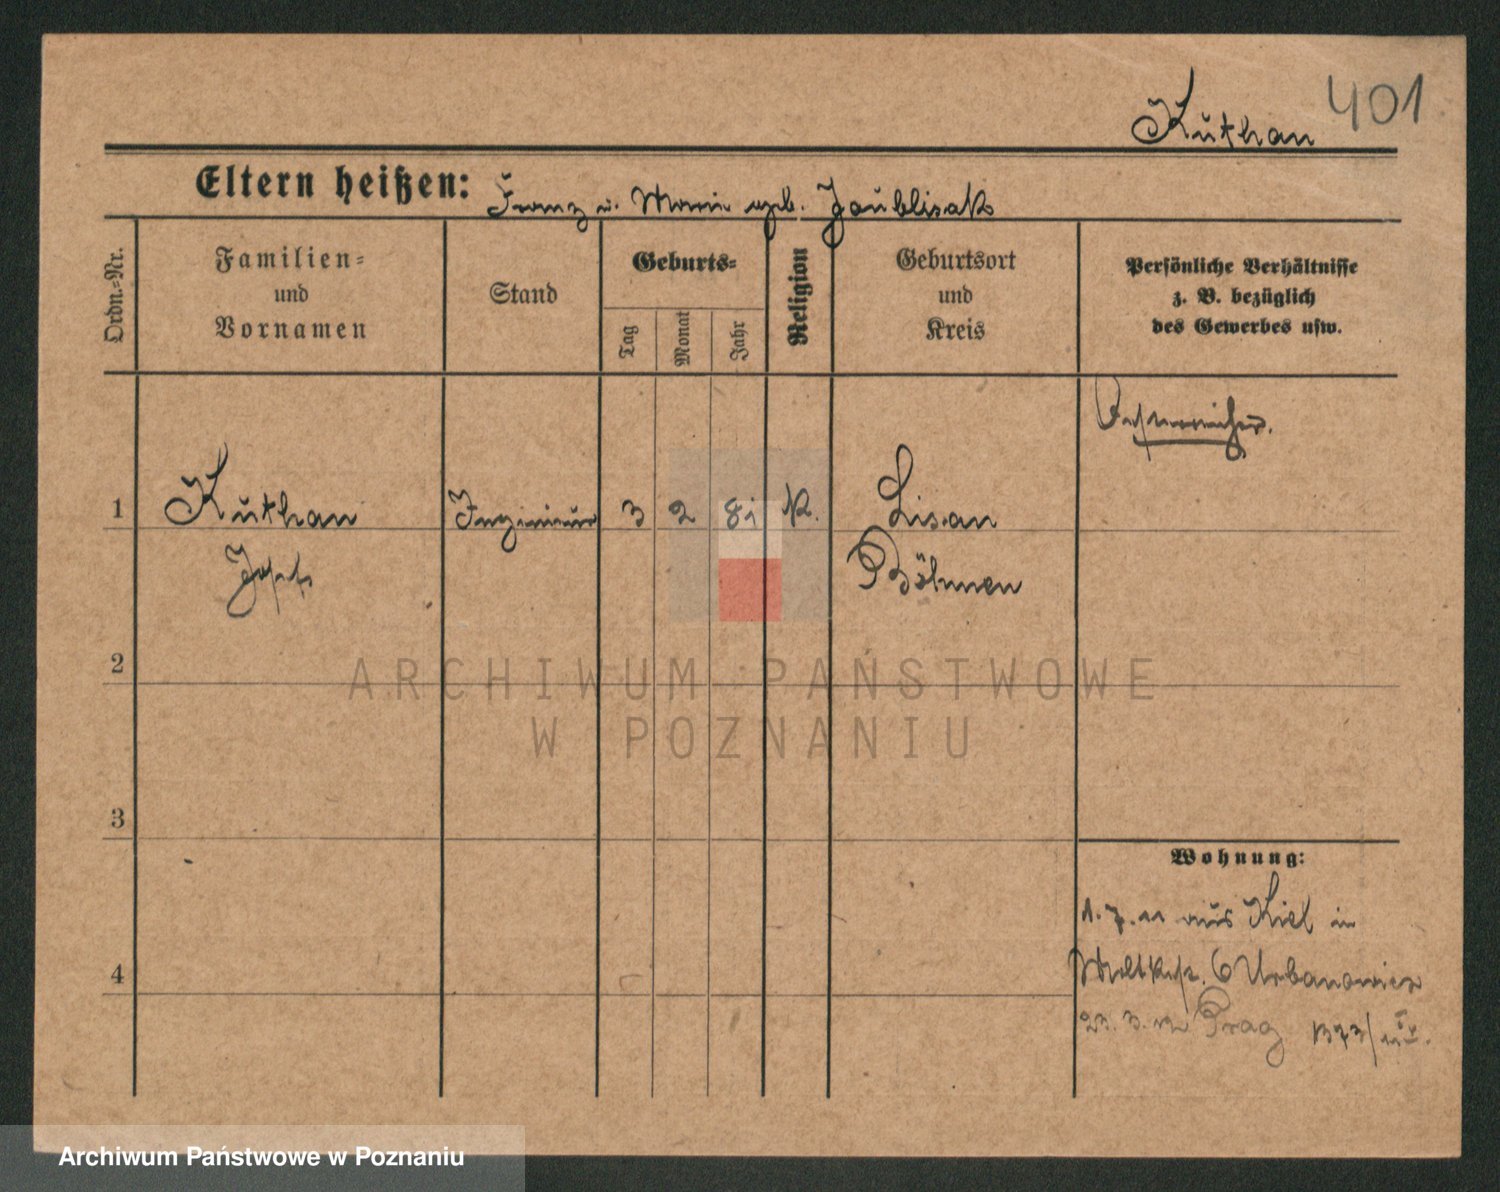 401
Kuthan
Eltern heißen: Franz u. Marie geb. Zaublisak
Ordn.-Nr.
Familien=
und
Vornamen
Stand
Geburts=
Tag
Monat
Jahr
Religion
Geburtsort
und
Kreis
Persönliche Verhältnisse
z. B. bezüglich
des Gewerbes usw.
Oesterreicher.
1 Kuthan Ingenieur 3 2 81 K. Lisan
Josef Böhmen
2
3
4
Wohnung:
1. 7. 11 aus Kiel in
Moltkestr. 6 Urbanowicz
23. 3. 12 Prag 1373/
ARCHIWUM PAŃSTWOWE
W POZNANIU
Archiwum Państwowe w Poznaniu